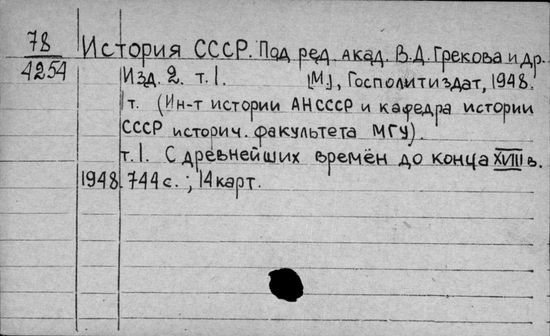 78
4254
История СССР. Под ред. акад. В.Д. Грекова и др.
Изд. 2. т. 1. [М], Госполитиздат, 1948.
1т. (Ин-т истории АНСССР и кафедра истории
СССР историч. факультета МГУ).
т. 1. С древнейших времён до конца XVIII в.
1948. 744 с. ; 14 карт.